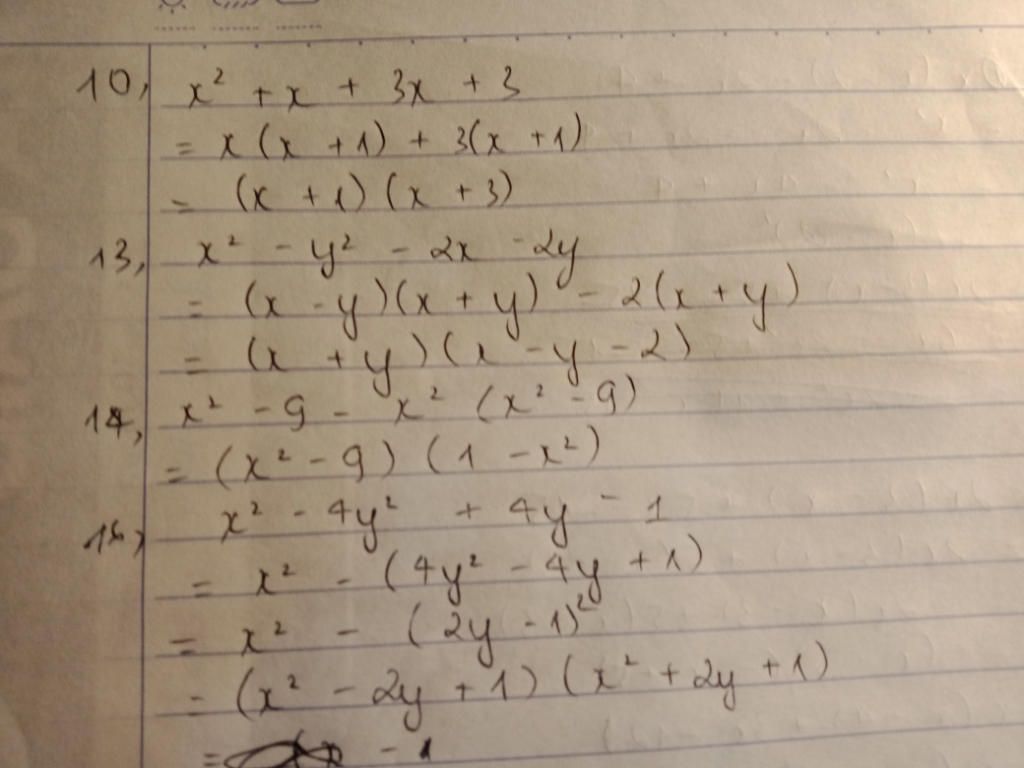 10, x² + x + 3x + 3
= x (x + 1) + 3(x + 1)
= (x + 1) (x + 3)
13, x² - y² - 2x - 2y
= (x - y)(x + y) - 2(x + y)
= (x + y)(x - y - 2)
14, x² - 9 - x² (x² - 9)
= (x² - 9) (1 - x²)
x² - 4y² + 4y - 1
= x² - (4y² - 4y + 1)
= x² - (2y - 1)²
= (x² - 2y + 1) (x² + 2y + 1)
= - 1